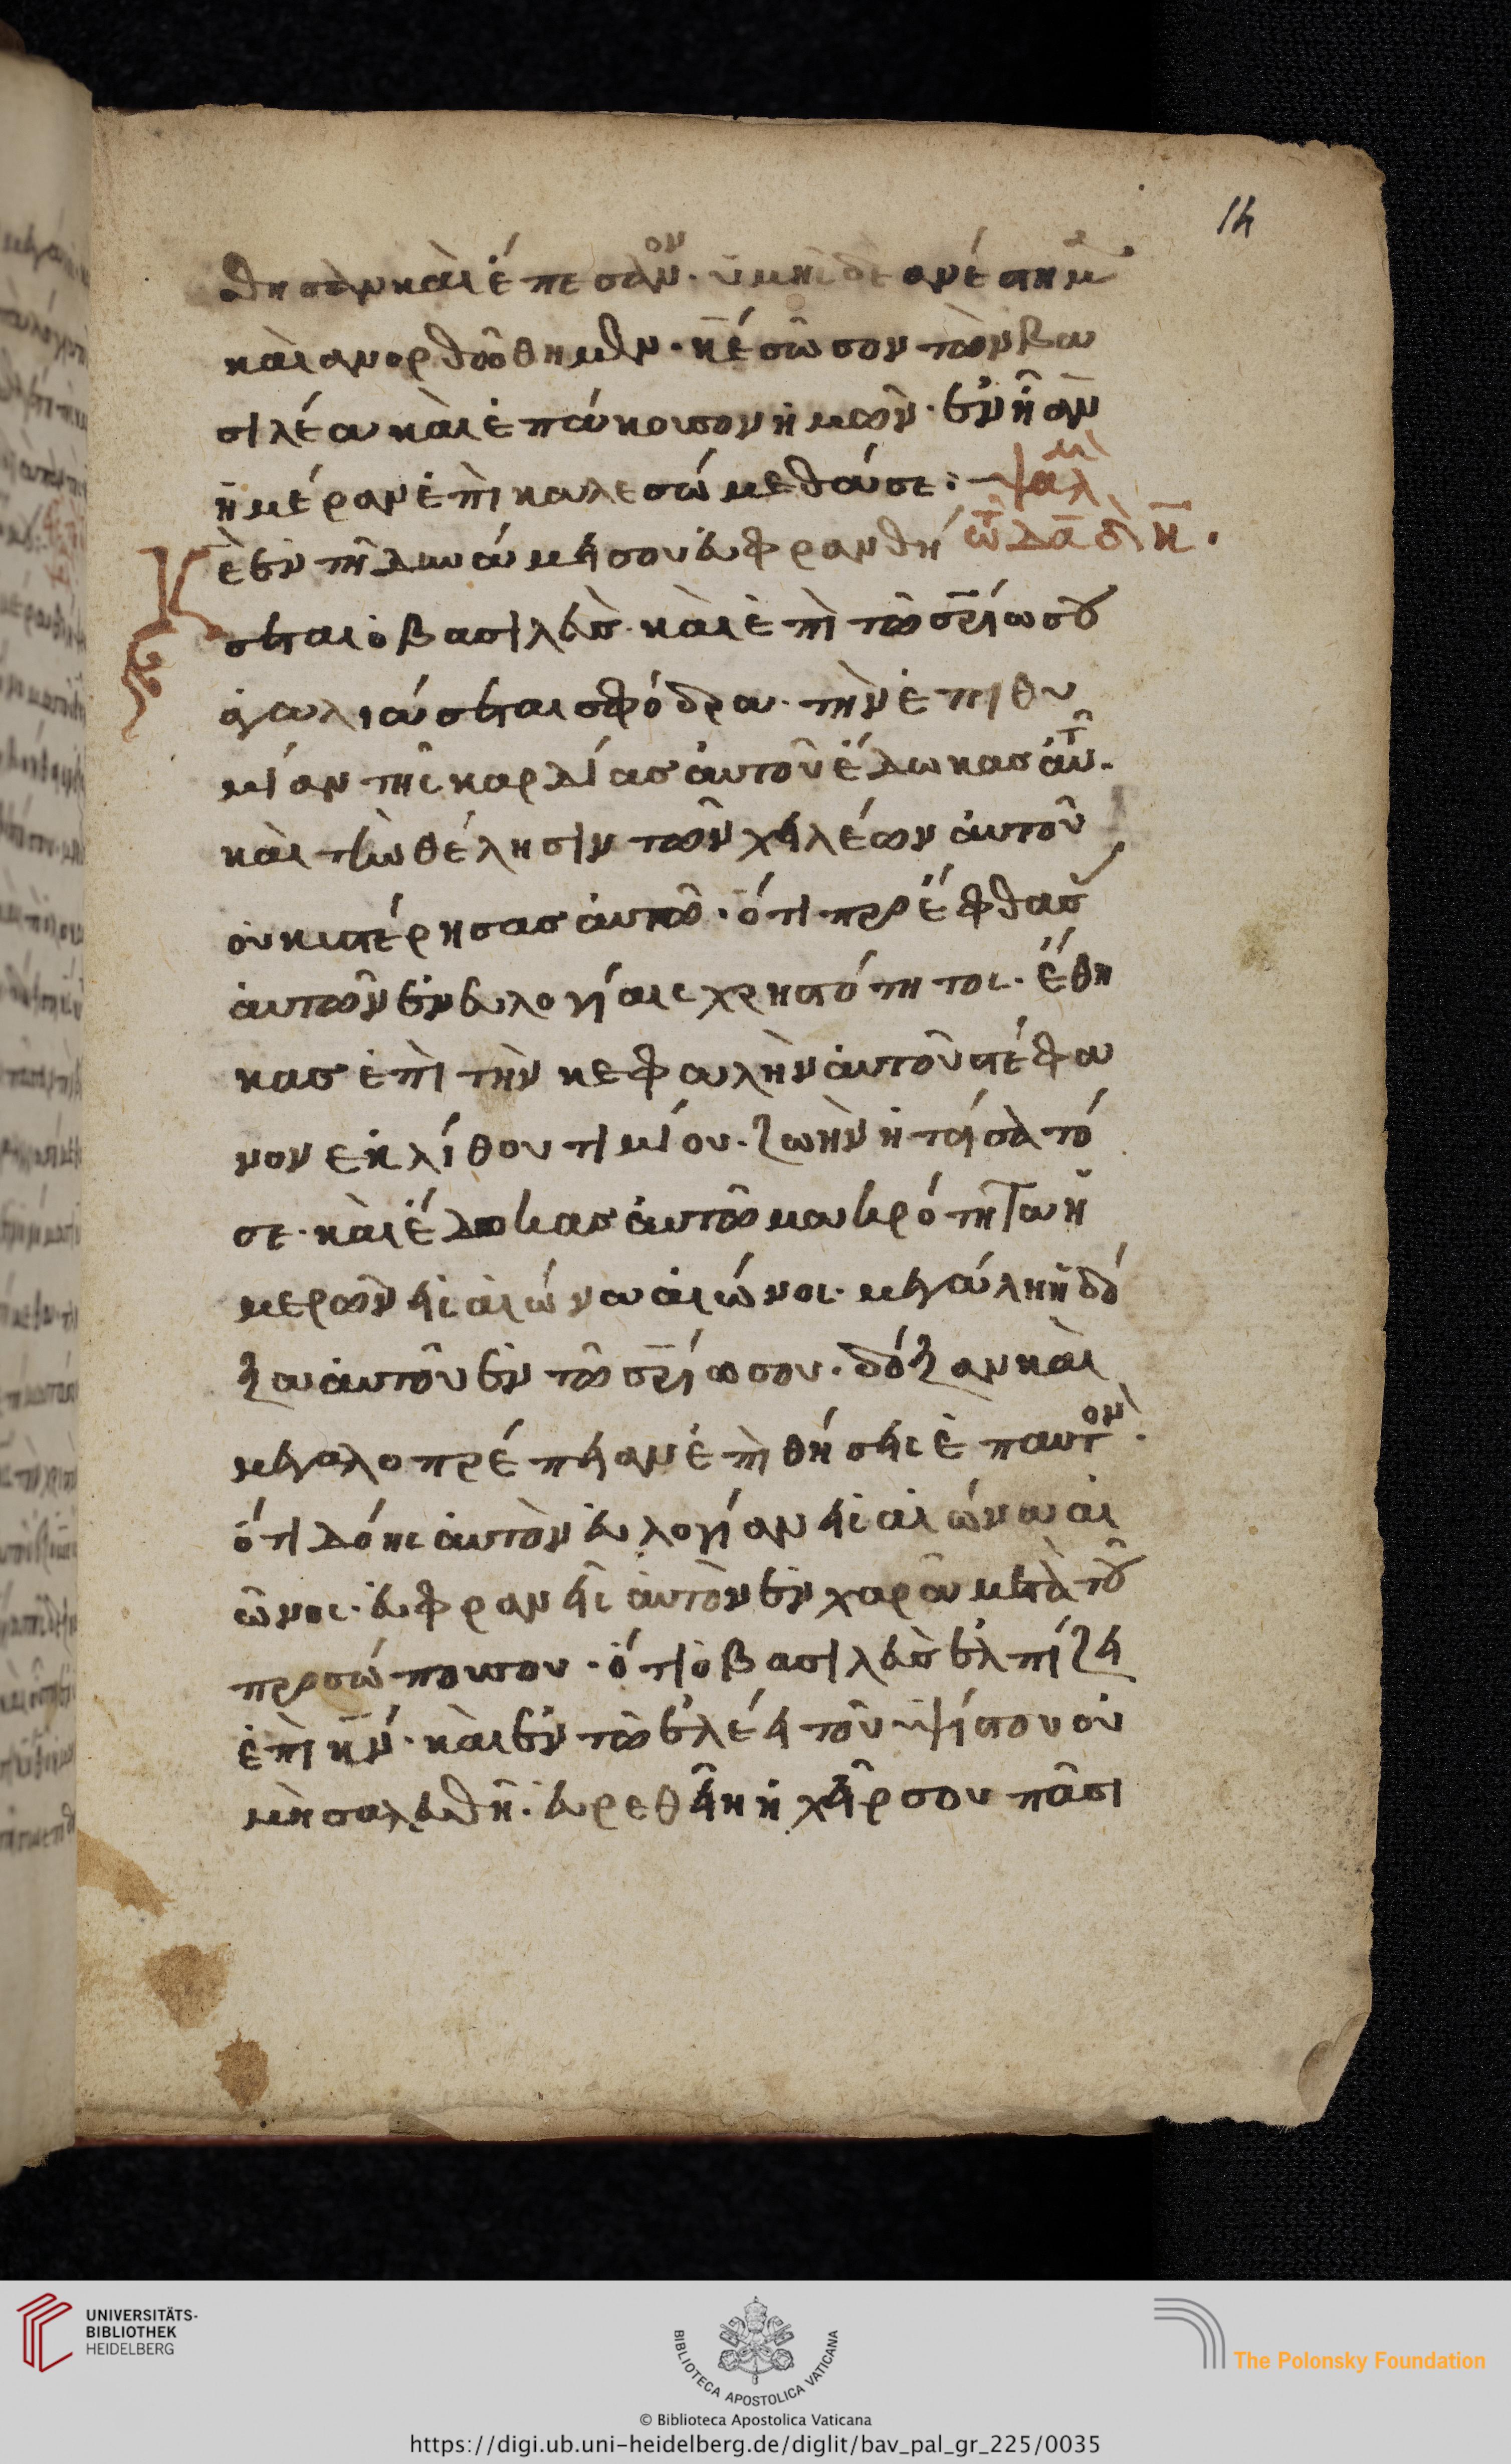 14
θησαν καὶ ἔπεσον· ὑμεῖς δὲ ἀνέστημ
καὶ ἀνορθώθημεν· κ̅ε̅ σῶσον τὸν βα
σιλέα καὶ ἐπάκουσον ἡμῶν· ἐν ᾗ ἂν
ἡμέραν ἐπικαλεσώμεθά σε: ψαλμ
Κ̅ε̅ ἐν τῇ δυνάμει σου εὐφρανθή τῶ δα̅δ̅ κ̅
σεται ὁ βασιλεὺς· καὶ ἐπὶ τῷ σ̅ρ̅ίω σου
ἀγαλιάσεται σφόδρα· τὴν ἐπιθυ
μίαν τῆς καρδίας αὐτοῦ ἔδωκας αὐτῶ·
καὶ τὴν θέλησιν τῶν χειλέων αὐτοῦ
οὐκ ἐστέρησας αὐτῶ· ὅτι προέφθασ
αὐτὸν ἐν εὐλογίαις χρηστότητος· ἔθη
κας ἐπὶ τὴν κεφαλὴν αὐτοῦ στέφα
νον ἐκ λίθου τιμίου· ζωὴν ᾐτήσατό
σε· καὶ ἔδωκας αὐτῶ μακρότητα ἡ
μερῶν εἰς αἰώνα αἰώνος· μεγάλη ἡ δό
ξα αὐτοῦ ἐν τῷ σ̅ρ̅ίω σου· δόξαν καὶ
μεγαλοπρέπειαν ἐπιθήσεις ἐπ αυτὸν·
ὅτι δόης αὐτὸν εὐλογίαν εἰς αἰώνα αἰ
ῶνος· εὐφρανεῖς αὐτὸν ἐν χαρᾶ μετὰ τοῦ
προσώπου σου· ὅτι ὁ βασιλεὺς ἐλπίζει
ἐπὶ κ̅ν̅· καὶ ἐν τῷ ἐλέει τοῦ ὑψίστου οὐ
μὴ σαλευθῆ· εὑρεθείη ἡ χεῖρ σου πᾶσι
UNIVERSITÄTS-
BIBLIOTHEK
HEIDELBERG
BIBLIOTECA APOSTOLICA VATICANA
The Polonsky Foundation
© Biblioteca Apostolica Vaticana
https://digi.ub.uni-heidelberg.de/diglit/bav_pal_gr_225/0035